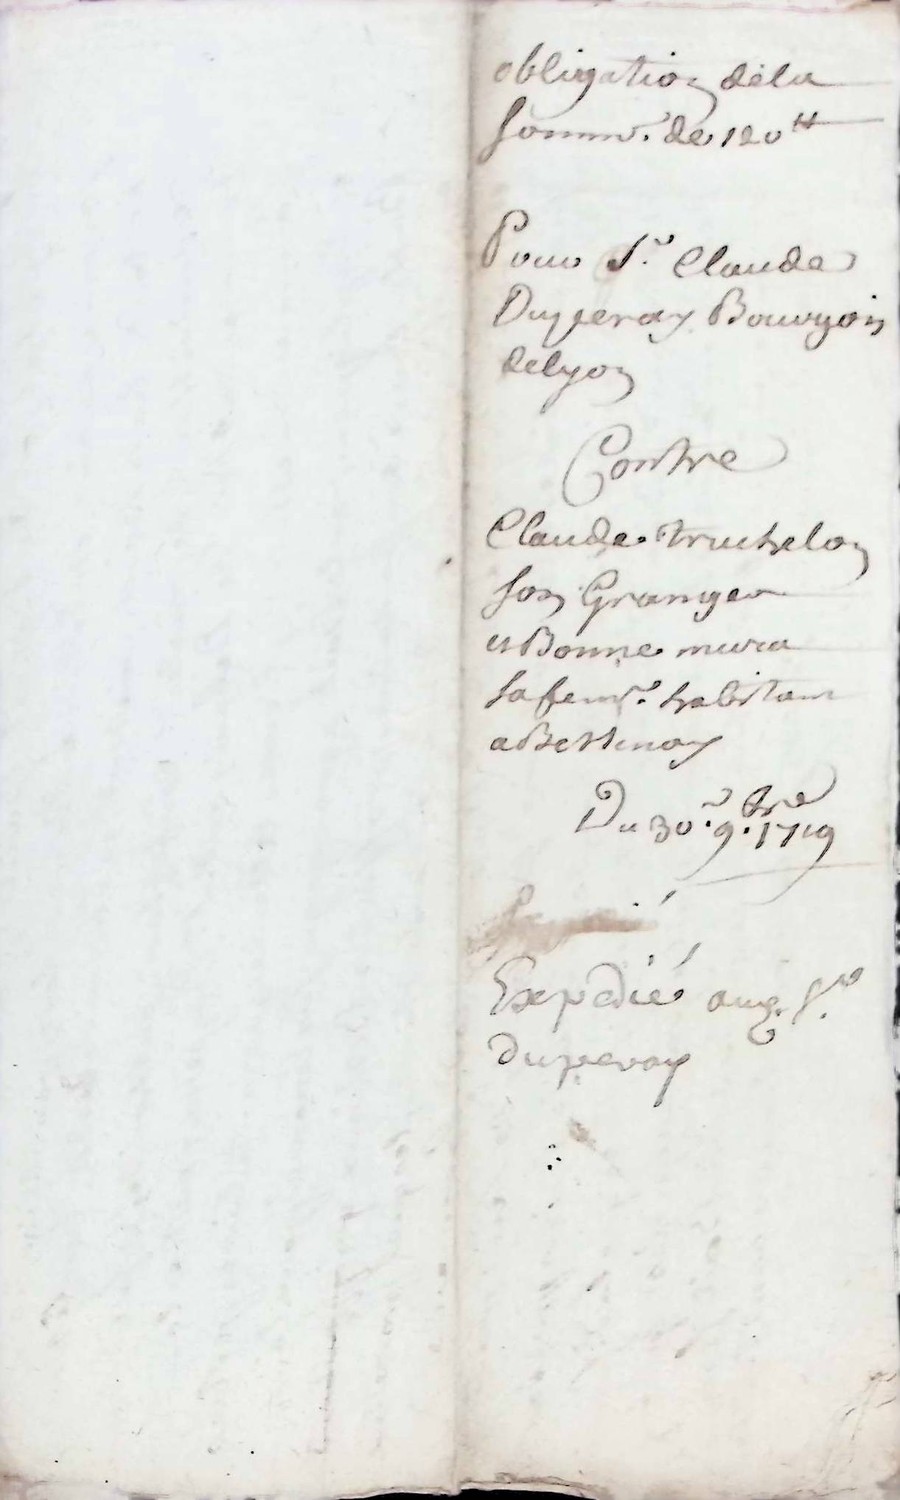 obligation dela
somme. de 120ᵗᵗ
Pour Sr. Claude
Duperay Bourgois
delyon
Contre
Claude truchelon
son Granger
et Bonne mura
sa femme. habitans
a
Du 30.e 9.bre 1719
Expedié aud. Sr.
duperay